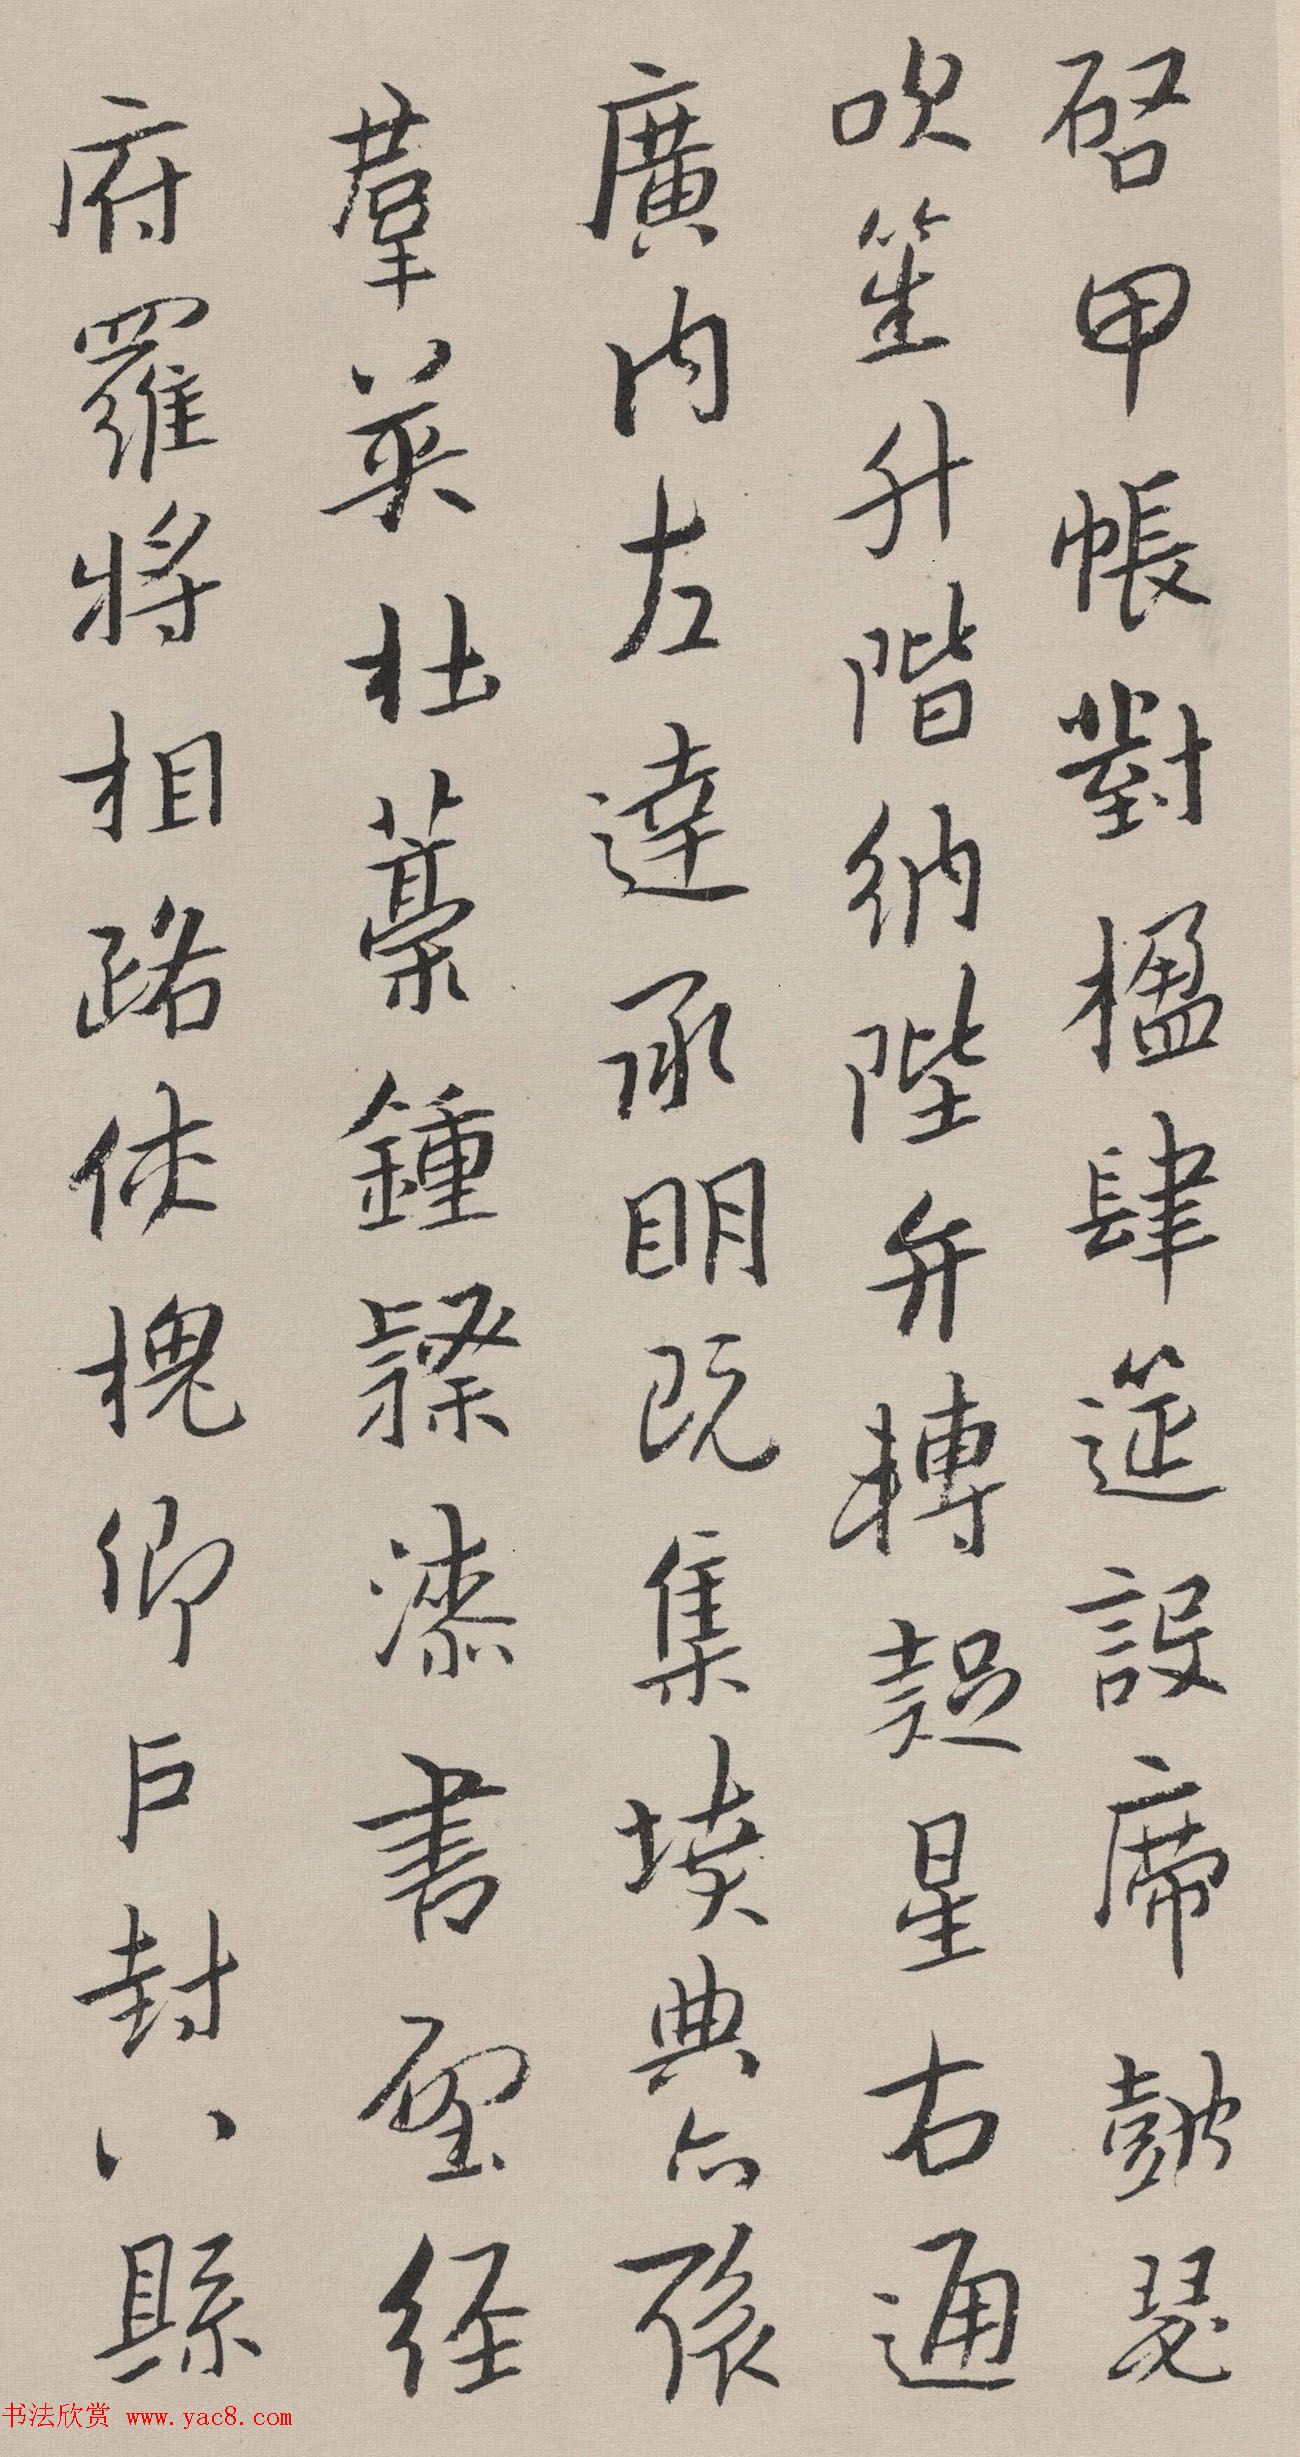 啓甲帳對楹肆筵設席鼓瑟
吹笙升階納陛弁轉疑星右通
廣內左達承明既集墳典亦聚
群英杜藁鍾隸漆書壁經
府羅將相路俠槐卿戶封八縣
书法欣赏 www.yac8.com